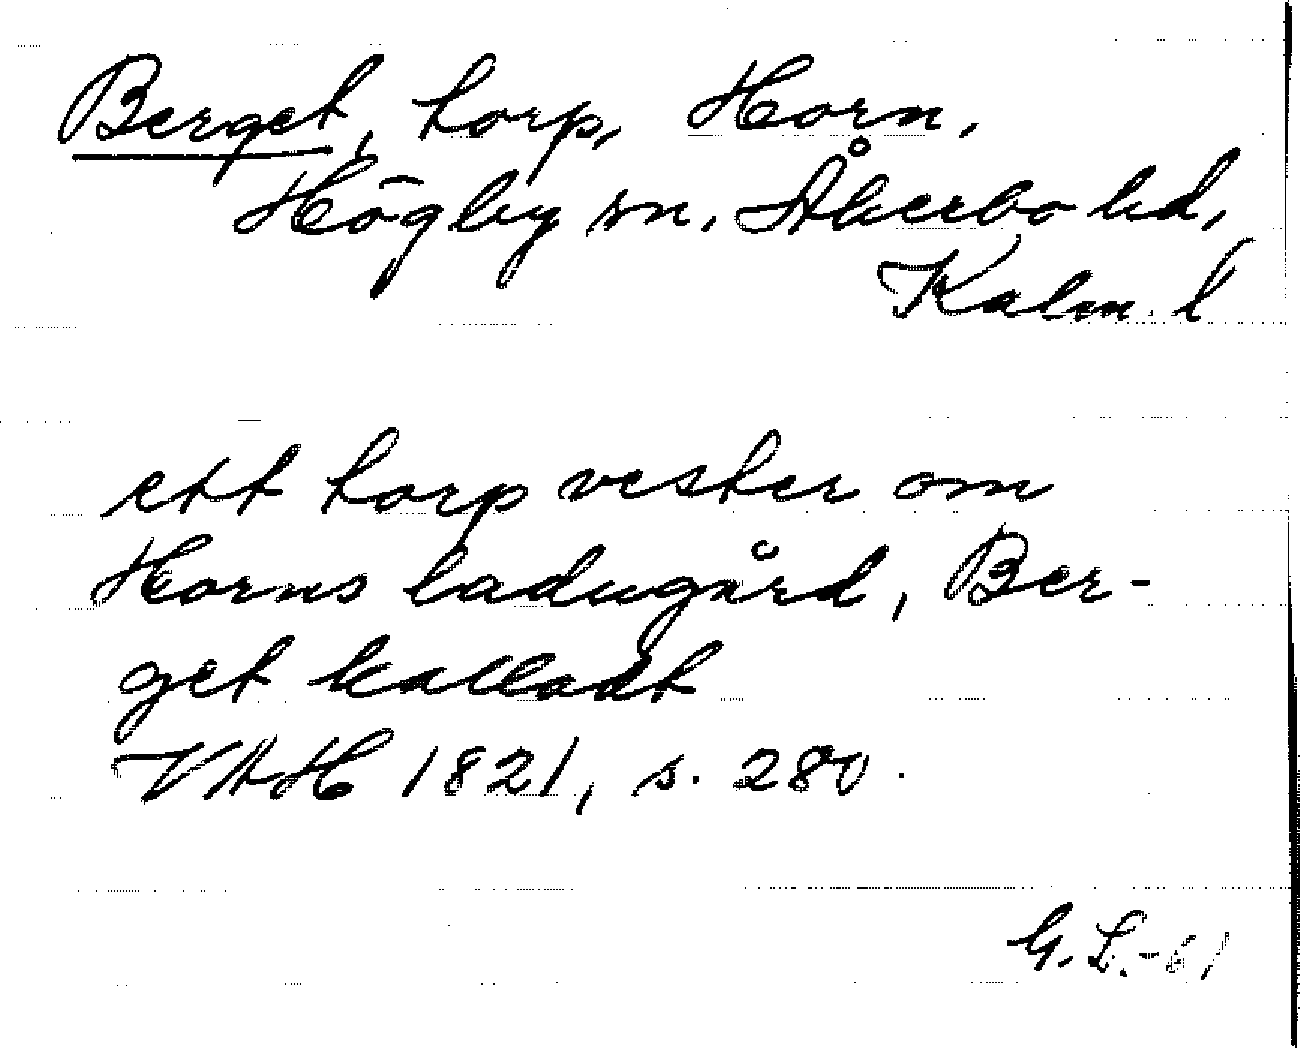 Berget, torp, Horn,
Högby sn. Åkerbo hd,
Kalm. l
ett torp vester om
Horns ladugård, Ber-
get kalladt
VAH 1821, s. 280.
G. L.-61